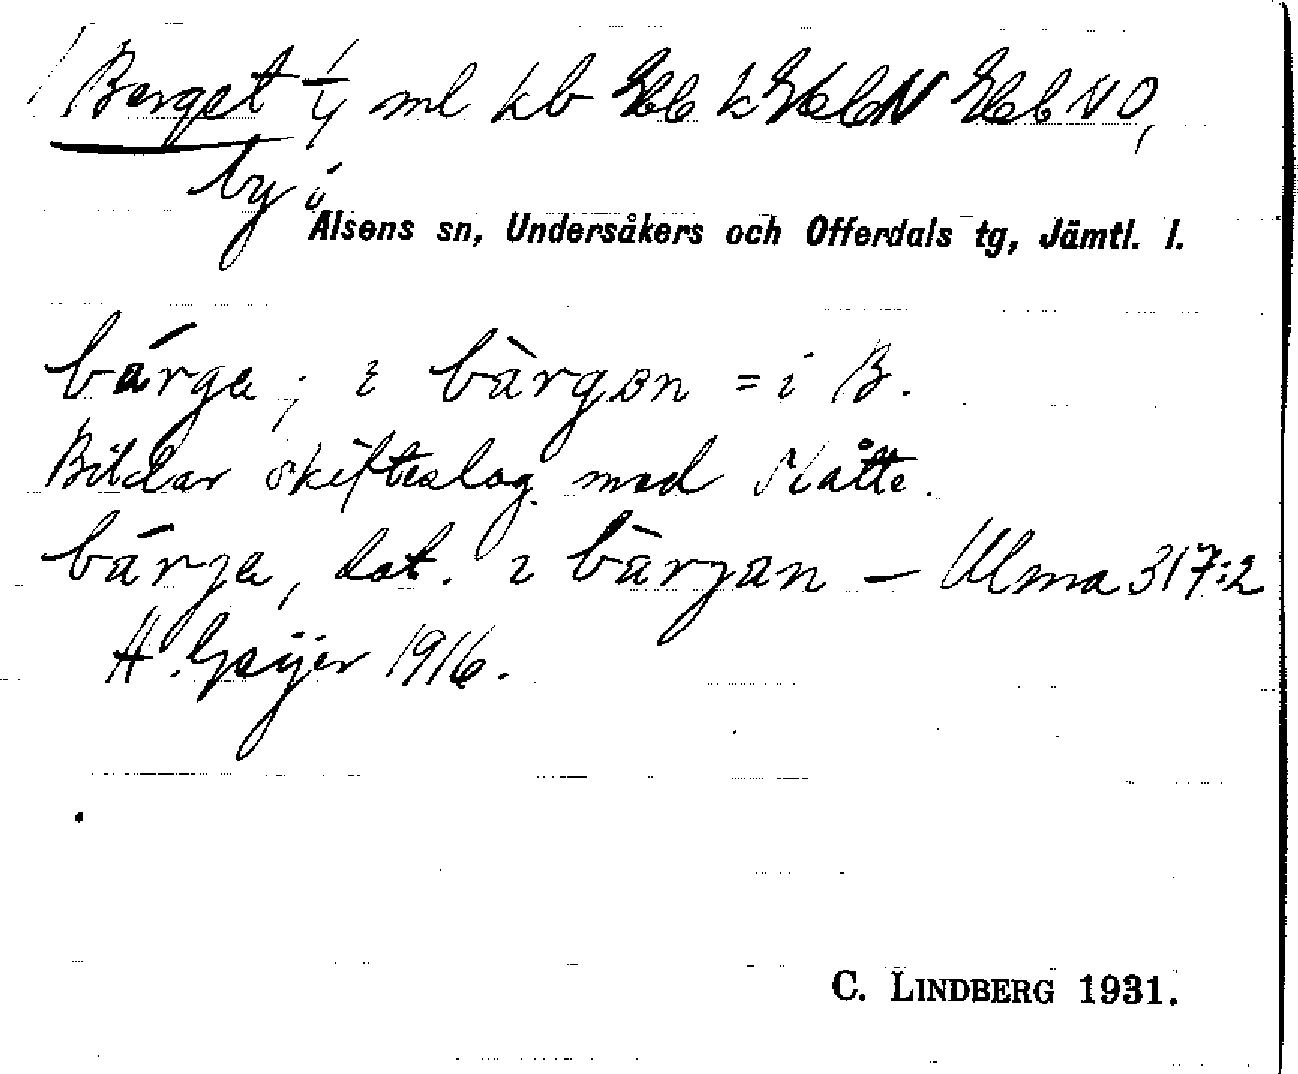 Berget ml kb Geb NO,
by i
Alsens sn, Undersåkers och Offerdals tg, Jämtl. l.
bárga; i bàrgen = i B.
Bildar skifteslag med Nåtte.
bárga, dat. i bàrgan – Ulma 317:2
H. Geijer 1916.
C. LINDBERG 1931.